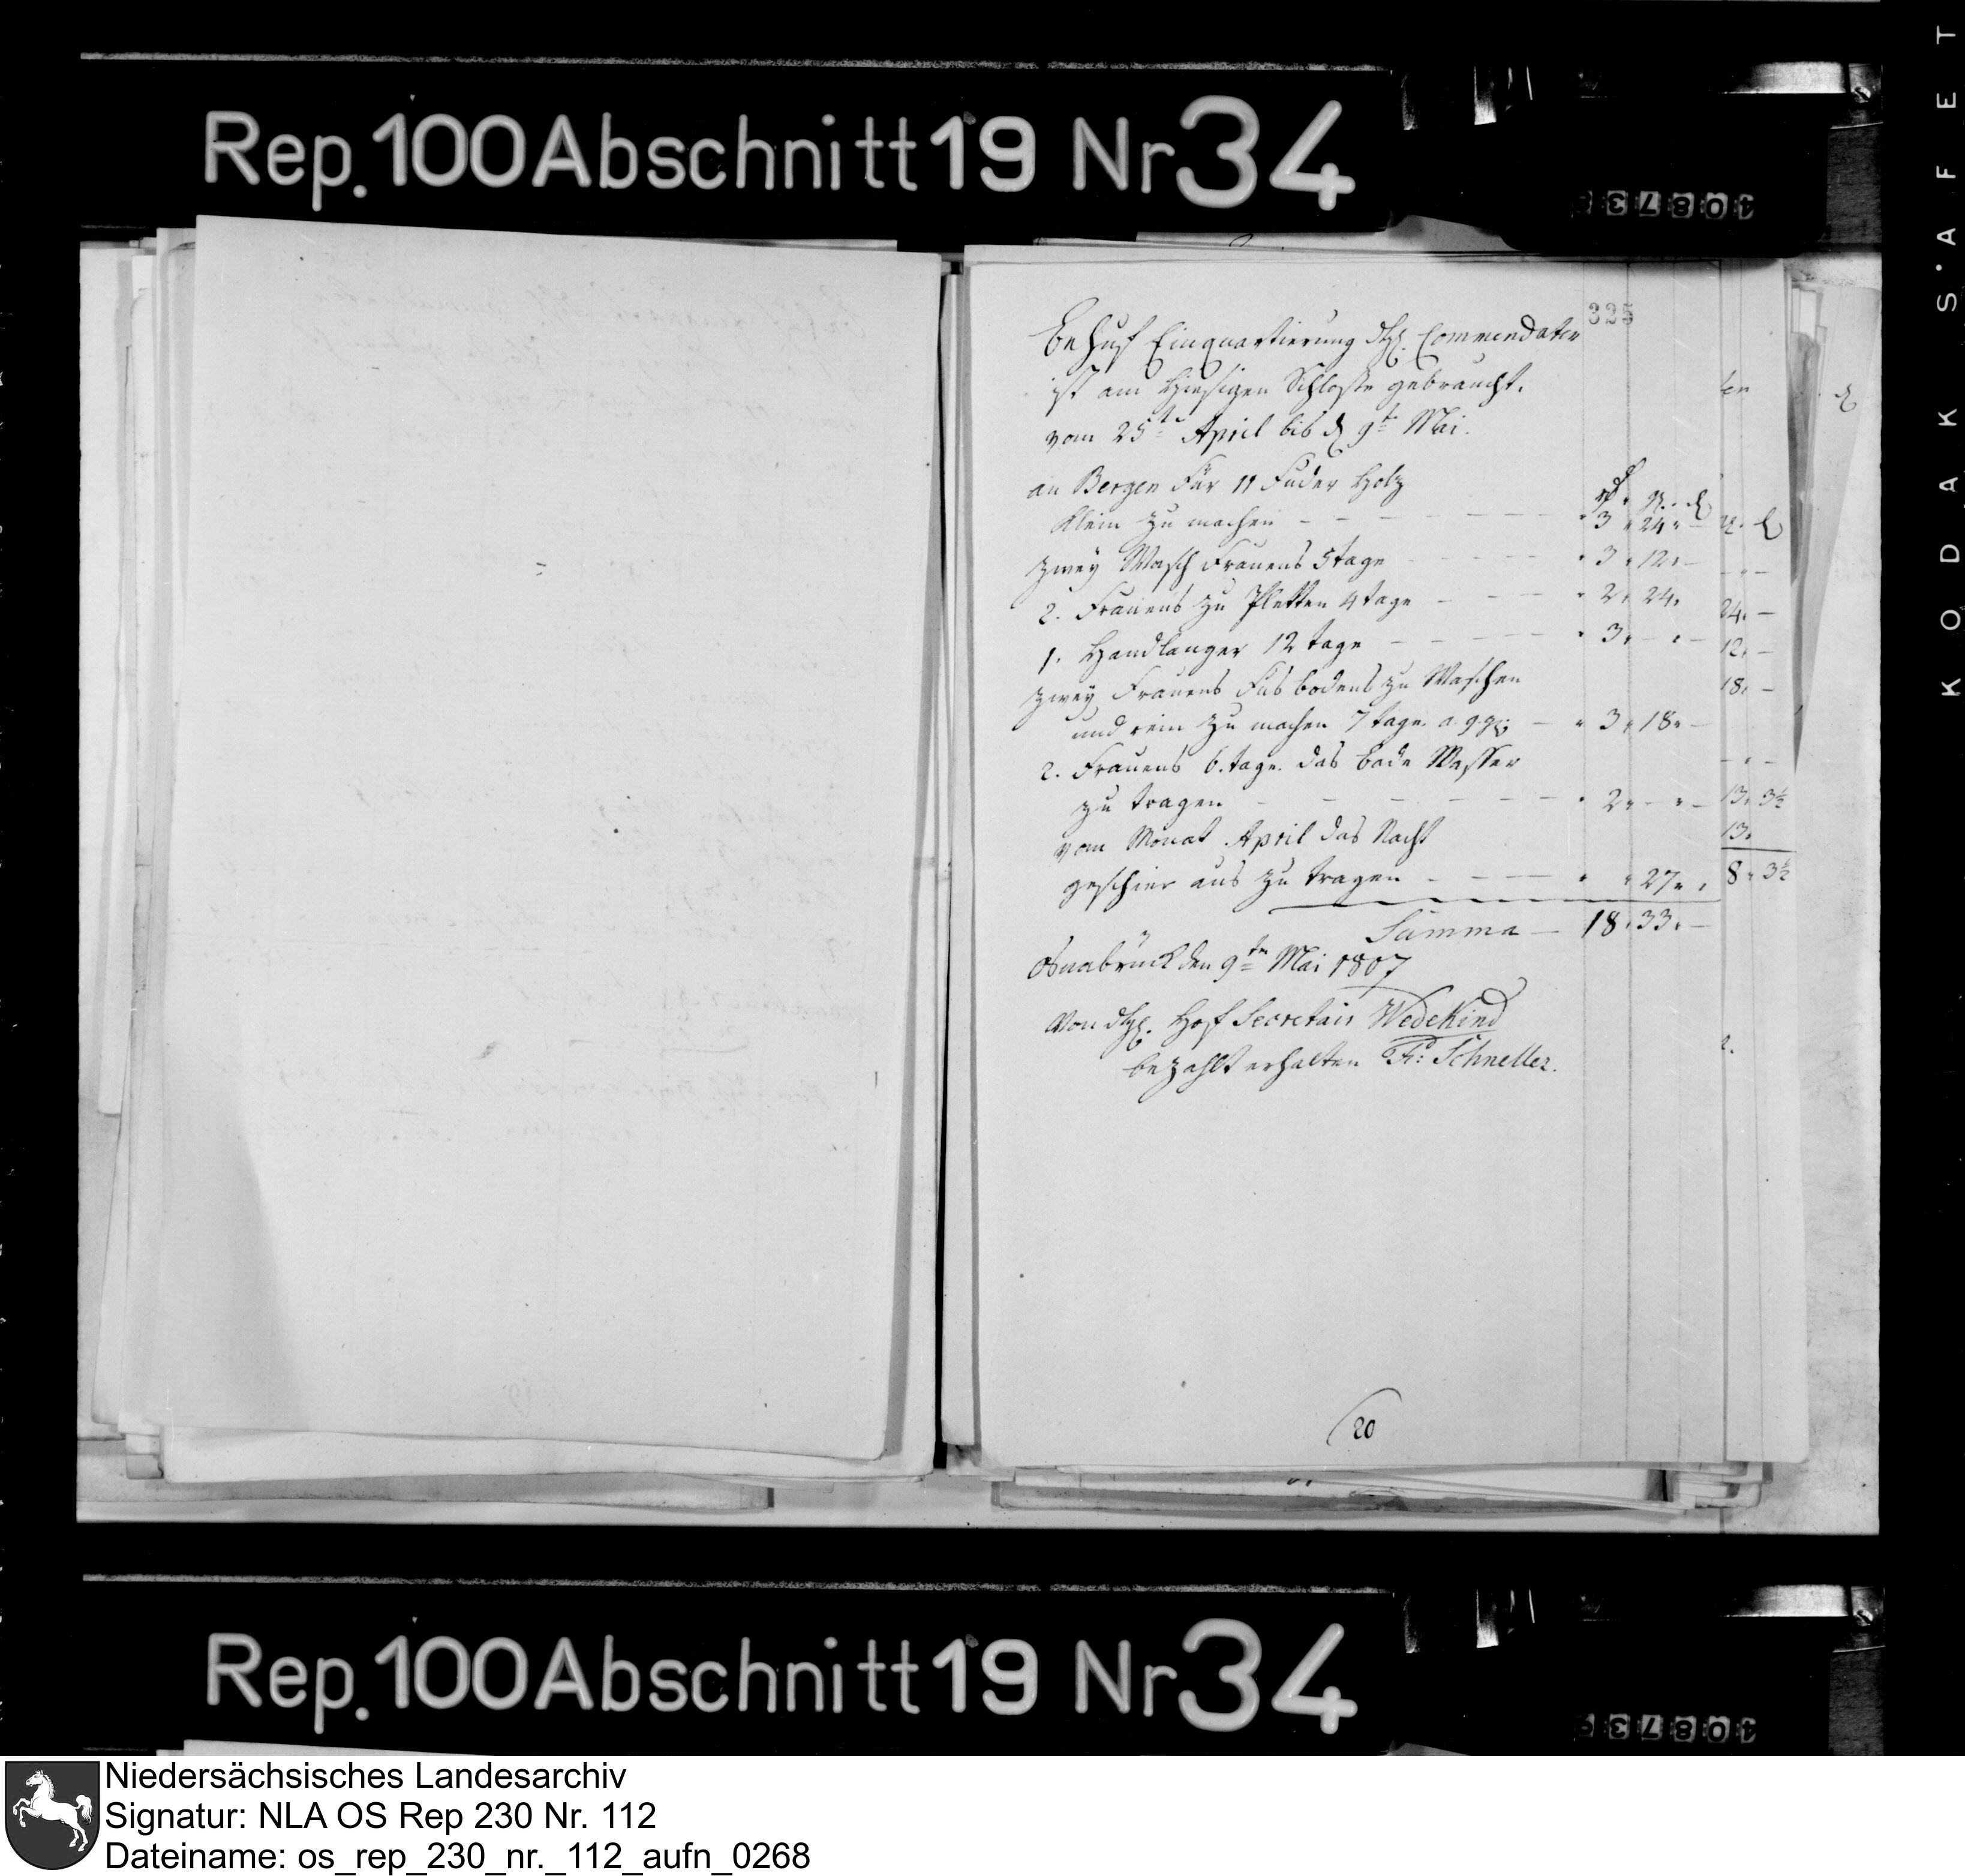 Rep. 100 Abschnitt 19 Nr 34
40873
KODAK S'AFET
325
Behuf Einquartierung des H. Commendaten
ist am Hiesigen Schloße gebraucht.
vom 25te April bis d 9t Mai.
an Bergen Für 11 Fuder Holz
Klein zu machen - - - - - 3 " 24 " -
zwey Wasch Frauens 5 tage - - - - 3 " 12 " -
2. Frauens zu Pletten 4 tage - - - 2 " 24 "
1. Handlanger 12 tage - - - - - 3 " - " -
zwey Frauens Fus bodens zu Waschen
und rein zu machen 7 tage a 9 - 3 " 18 " -
2. Frauens 6. tage. das bade Wasser
zu tragen - - - - - - 2 " - " -
vom Monat April das Nacht
geschier aus zu tragen - - - " " 27 " "
Summa - 18 " 33 " -
Osnabrück den 9ten Mai 1807
Von H. Hof Secretair Wedekind
bezahlt erhalten Fr: Schneller.
24 " -
12 " -
18 " -
13 " 3½
13 "
8 " 3½
20
Rep. 100 Abschnitt 19 Nr 34
40873
Niedersächsisches Landesarchiv
Signatur: NLA OS Rep 230 Nr. 112
Dateiname: os_rep_230_nr._112_aufn_0268